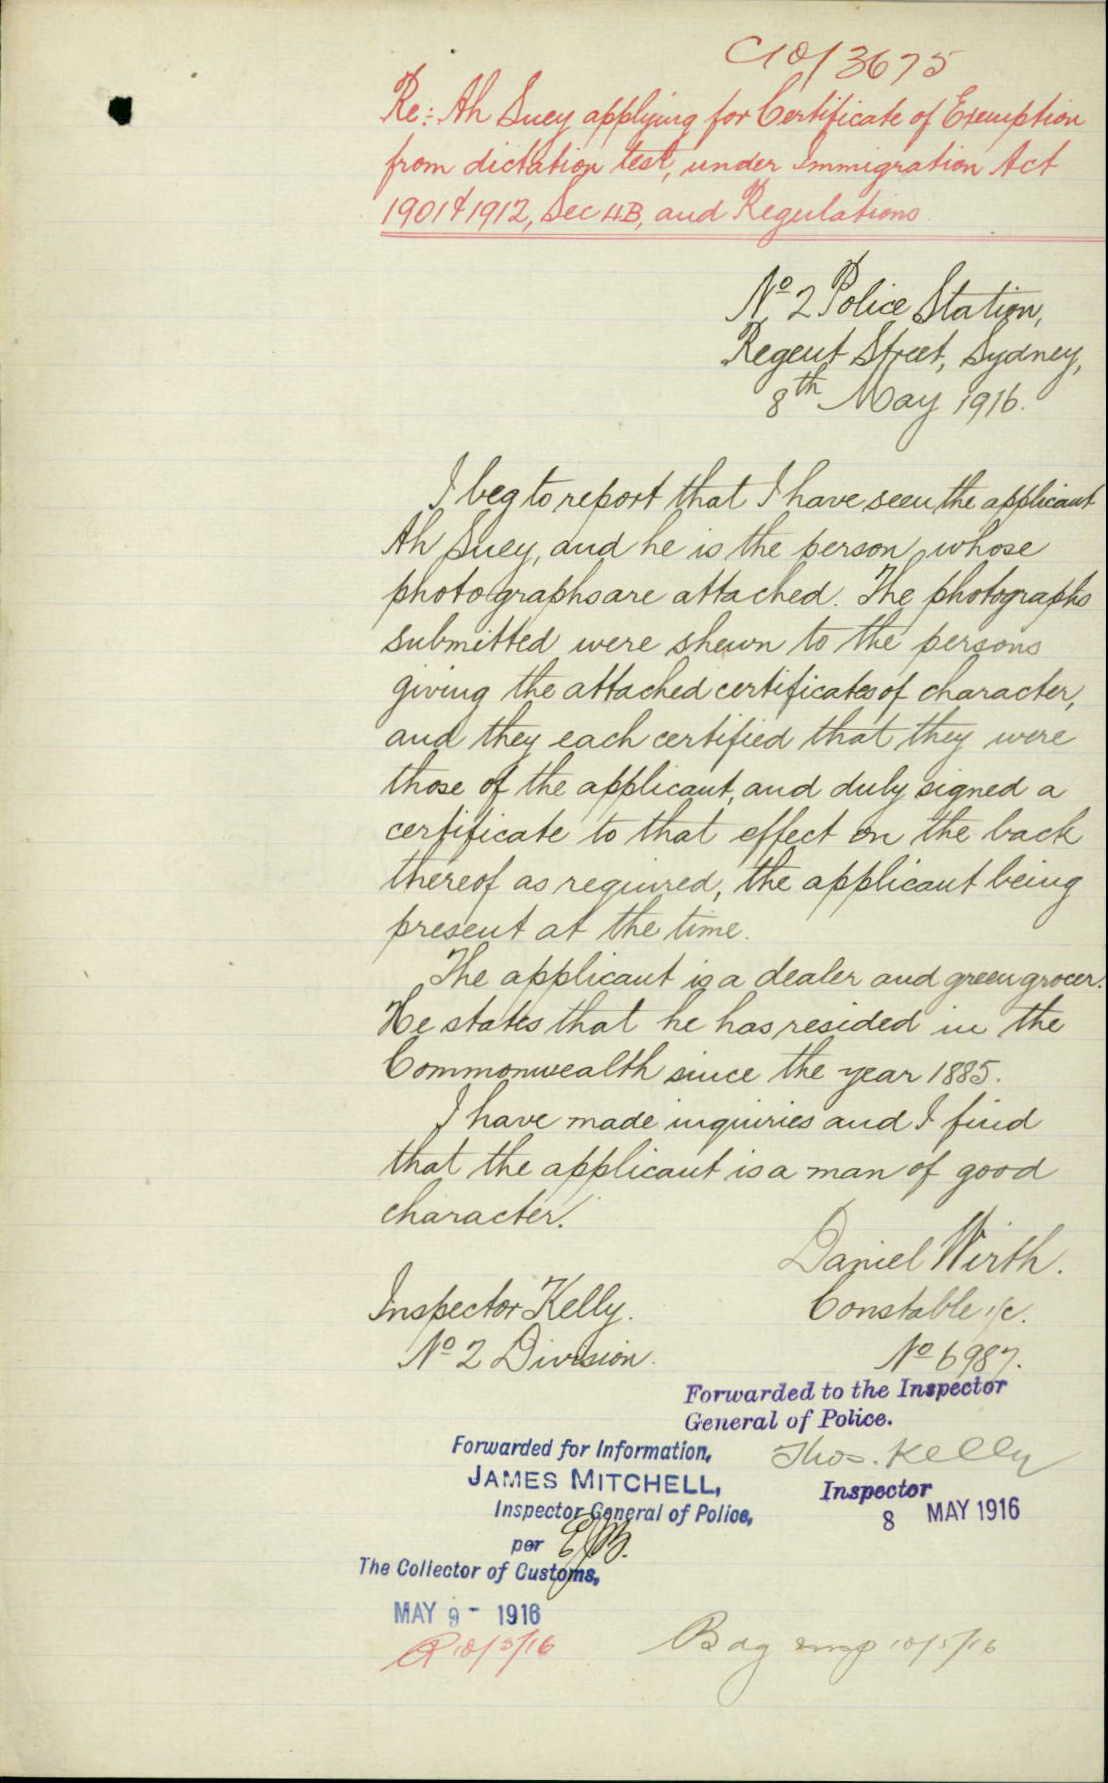 C10/3675
Re:- Ah Suey applying for Certificate of Exemption
from dictation test, under Immigration Act
1901 & 1912, Sec 4B, and Regulations
No 2 Police Station,
Regent Street, Sydney,
8th May 1916.
I beg to report that I have seen the applicant
Ah Suey, and he is the person whose
photographs are attached. The photographs
submitted were shewn to the persons
giving the attached certificates of character,
and they each certified that they were
those of the applicant, and duly signed a
certificate to that effect on the back
thereof as required, the applicant being
present at the time.
The applicant is a dealer and greengrocer.
He states that he has resided in the
Commonwealth since the year 1885.
I have made inquiries and I find
that the applicant is a man of good
character.
Daniel Wirth.
Constable 1/c.
No 6987.
Inspector Kelly.
No 2 Division.
Forwarded to the Inspector
General of Police.
Thos. Kelly
Inspector
8 MAY 1916
Forwarded for Information,
JAMES MITCHELL,
Inspector General of Police,
per
The Collector of Customs,
MAY 9 - 1916
10/5/16
10/5/16